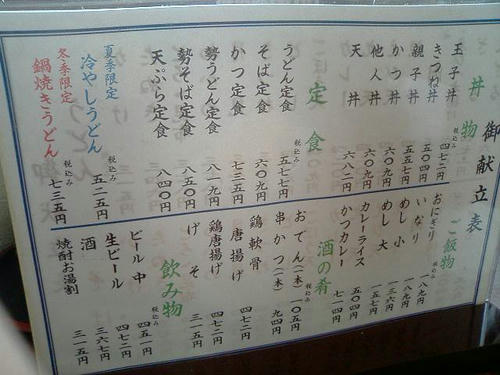 御献立表
丼物
玉子丼 税込み 四七二円
きつね丼 五〇四円
親子丼 五五七円
かつ丼 六〇九円
他人丼 六〇九円
天丼 六八二円
定食
うどん定食 税込み 五七七円
そば定食 六〇九円
かつ定食 七三五円
勢うどん定食 八一九円
勢そば定食 八五〇円
天ぷら定食 八四〇円
夏季限定
冷やしうどん 税込み 五二五円
冬季限定
鍋焼きうどん 税込み 七三五円
ご飯物
おにぎり 税込み 八七円
いなり 一八九円
めし 小 一三六円
めし 大 一五七円
カレーライス 五〇四円
かつカレー 七一四円
酒の肴
おでん(一本) 税込み 一〇五円
串かつ(一本) 九四円
鶏軟骨
鶏唐揚げ 四七二円
鶏唐揚げ 四七二円
げそ 三一五円
飲み物
ビール 中 税込み 四五一円
生ビール 四七二円
酒 三六七円
焼酎お湯割 三一五円